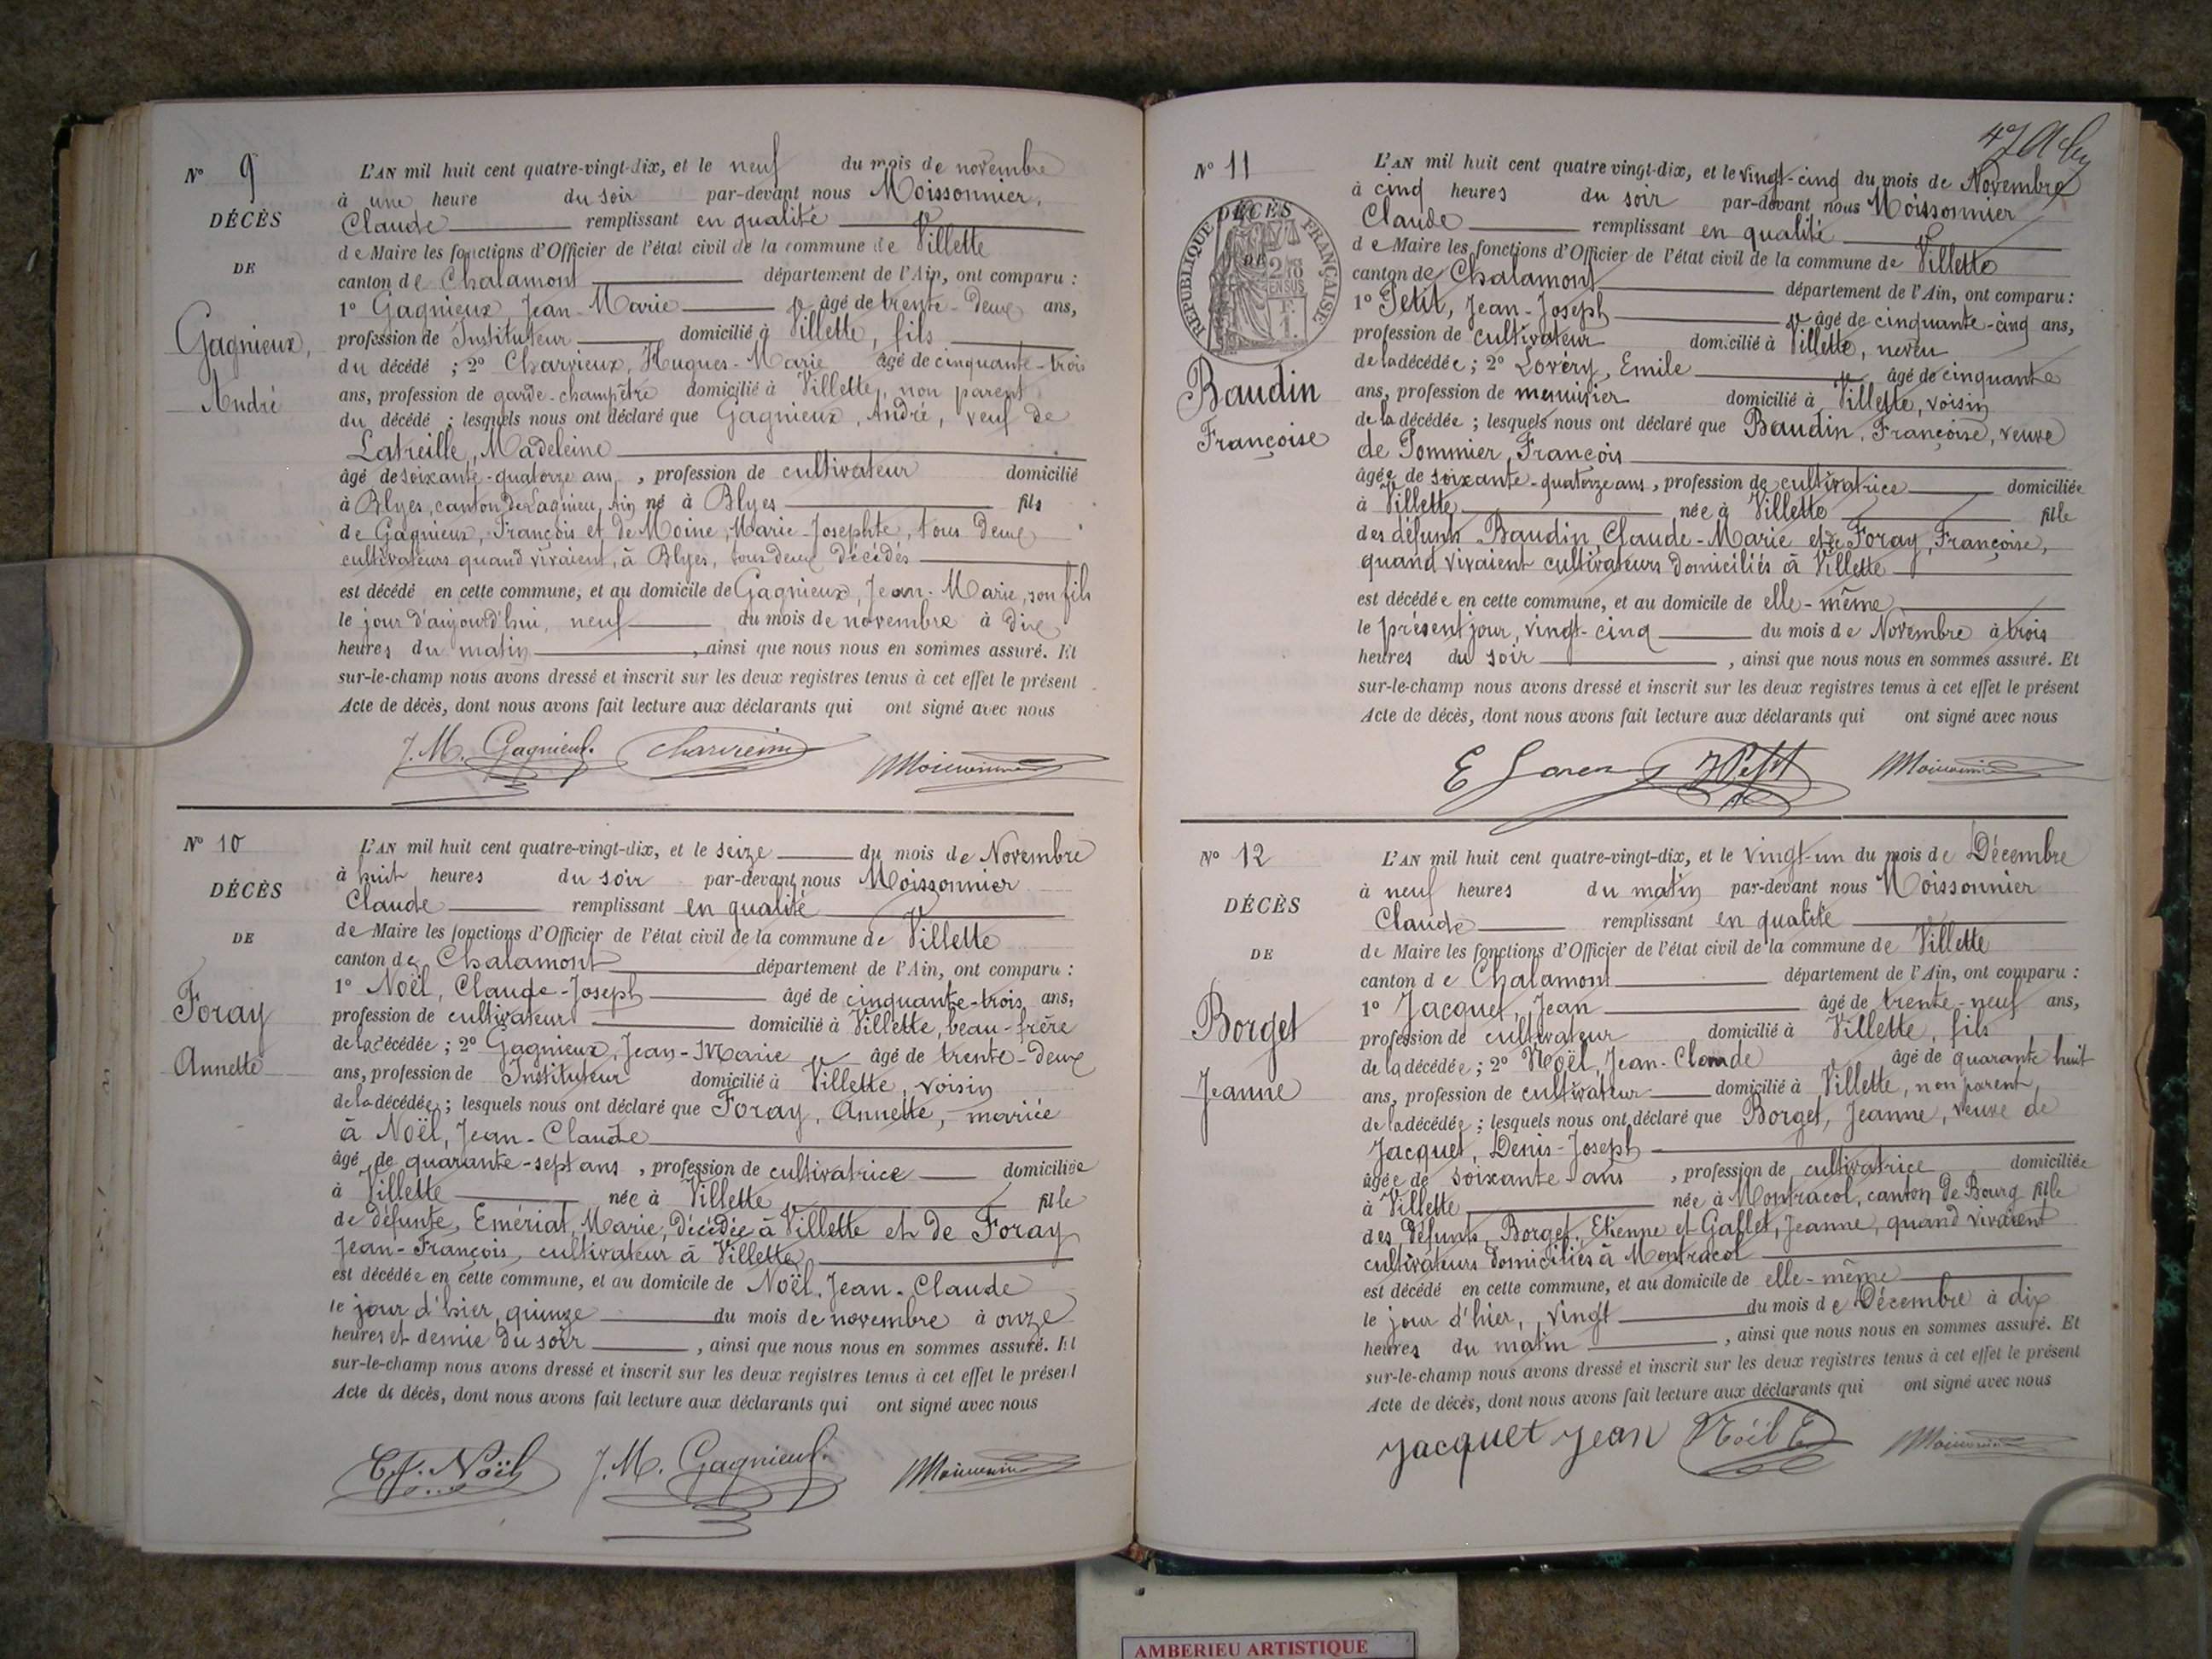 N° 9
DÉCÈS
DE
Gagnieux,
André
L'AN mil huit cent quatre-vingt-dix, et le neuf du mois de novembre
à une heure du soir par-devant nous Moissonnier,
Claude remplissant en qualité
de Maire les fonctions d'Officier de l'état civil de la commune de Villette
canton de Chalamont département de l'Ain, ont comparu :
1° Gagnieux, Jean-Marie âgé de trente-deux ans,
profession de Instituteur domicilié à Villette, fils
du décédé ; 2° Charvieux, Hugues-Marie âgé de cinquante-trois
ans, profession de garde-champêtre domicilié à Villette, non parent
du décédé ; lesquels nous ont déclaré que Gagnieux, André, veuf de
Latreille, Madeleine
âgé de soixante-quatorze ans, profession de cultivateur domicilié
à Blyes, canton de Lagnieu, Ain né à Blyes fils
de Gagnieux, François et de Moine, Marie-Josephte, tous deux
cultivateurs quand vivaient, à Blyes, tous deux décédés
est décédé en cette commune, et au domicile de Gagnieux, Jean-Marie, son fils
le jour d'aujourd'hui, neuf du mois de novembre à dix
heures du matin, ainsi que nous nous en sommes assuré. Et
sur-le-champ nous avons dressé et inscrit sur les deux registres tenus à cet effet le présent
Acte de décès, dont nous avons fait lecture aux déclarants qui ont signé avec nous
J. M. Gagnieux. Charvieux Moissonnier
N° 10
DÉCÈS
DE
Foray
Annette
L'AN mil huit cent quatre-vingt-dix, et le seize du mois de Novembre
à huit heures du soir par-devant nous Moissonnier
Claude remplissant en qualité
de Maire les fonctions d'Officier de l'état civil de la commune de Villette
canton de Chalamont département de l'Ain, ont comparu :
1° Noël, Claude-Joseph âgé de cinquante-trois ans,
profession de cultivateur domicilié à Villette, beau-frère
de la décédée ; 2° Gagnieux, Jean-Marie âgé de trente-deux
ans, profession de Instituteur domicilié à Villette, voisin
de la décédée ; lesquels nous ont déclaré que Foray, Annette, mariée
à Noël, Jean-Claude
âgé de quarante-sept ans, profession de cultivatrice domiciliée
à Villette née à Villette fille
de défunte, Emériat, Marie, décédée à Villette et de Foray
Jean-François, cultivateur à Villette
est décédée en cette commune, et au domicile de Noël, Jean-Claude
le jour d'hier, quinze du mois de novembre à onze
heures et demie du soir, ainsi que nous nous en sommes assuré. Et
sur-le-champ nous avons dressé et inscrit sur les deux registres tenus à cet effet le présent
Acte de décès, dont nous avons fait lecture aux déclarants qui ont signé avec nous
C. J. Noël J. M. Gagnieux. Moissonnier
47
N° 11
DÉCÈS
DE
RÉPUBLIQUE FRANÇAISE
2/10 EN SUS
F. 1.
Baudin
Françoise
L'AN mil huit cent quatre vingt-dix, et le vingt-cinq du mois de Novembre
à cinq heures du soir par-devant nous Moissonnier
Claude remplissant en qualité
de Maire les fonctions d'Officier de l'état civil de la commune de Villette
canton de Chalamont département de l'Ain, ont comparu :
1° Petit, Jean-Joseph âgé de cinquante-cinq ans,
profession de cultivateur domicilié à Villette, neveu
de la décédée ; 2° Lovéry, Emile âgé de cinquante
ans, profession de menuisier domicilié à Villette, voisin
de la décédée ; lesquels nous ont déclaré que Baudin, Françoise, veuve
de Pommier, François
âgée de soixante-quatorze ans, profession de cultivatrice domiciliée
à Villette née à Villette fille
des défunts Baudin, Claude-Marie et de Foray, Françoise,
quand vivaient cultivateurs domiciliés à Villette
est décédée en cette commune, et au domicile de elle-même
le présent jour, vingt-cinq du mois de Novembre à trois
heures du soir, ainsi que nous nous en sommes assuré. Et
sur-le-champ nous avons dressé et inscrit sur les deux registres tenus à cet effet le présent
Acte de décès, dont nous avons fait lecture aux déclarants qui ont signé avec nous
E Petit Moissonnier
N° 12
DÉCÈS
DE
Borget
Jeanne
L'AN mil huit cent quatre-vingt-dix, et le vingt-un du mois de Décembre
à neuf heures du matin par-devant nous Moissonnier
Claude remplissant en qualité
de Maire les fonctions d'Officier de l'état civil de la commune de Villette
canton de Chalamont département de l'Ain, ont comparu :
1° Jacquet, Jean âgé de trente-neuf ans,
profession de cultivateur domicilié à Villette, fils
de la décédée ; 2° Noël, Jean-Claude âgé de quarante huit
ans, profession de cultivateur domicilié à Villette, non parent,
de la décédée ; lesquels nous ont déclaré que Borget, Jeanne, veuve de
Jacquet, Denis-Joseph
âgée de soixante ans, profession de cultivatrice domiciliée
à Villette née à Montracol, canton de Bourg fille
des défunts, Borget, Etienne et Gallet, Jeanne, quand vivaient
cultivateurs domiciliés à Montracol
est décédé en cette commune, et au domicile de elle-même
le jour d'hier, vingt du mois de Décembre à dix
heures du matin, ainsi que nous nous en sommes assuré. Et
sur-le-champ nous avons dressé et inscrit sur les deux registres tenus à cet effet le présent
Acte de décès, dont nous avons fait lecture aux déclarants qui ont signé avec nous
Jacquet Jean Noël Moissonnier
AMBERIEU ARTISTIQUE